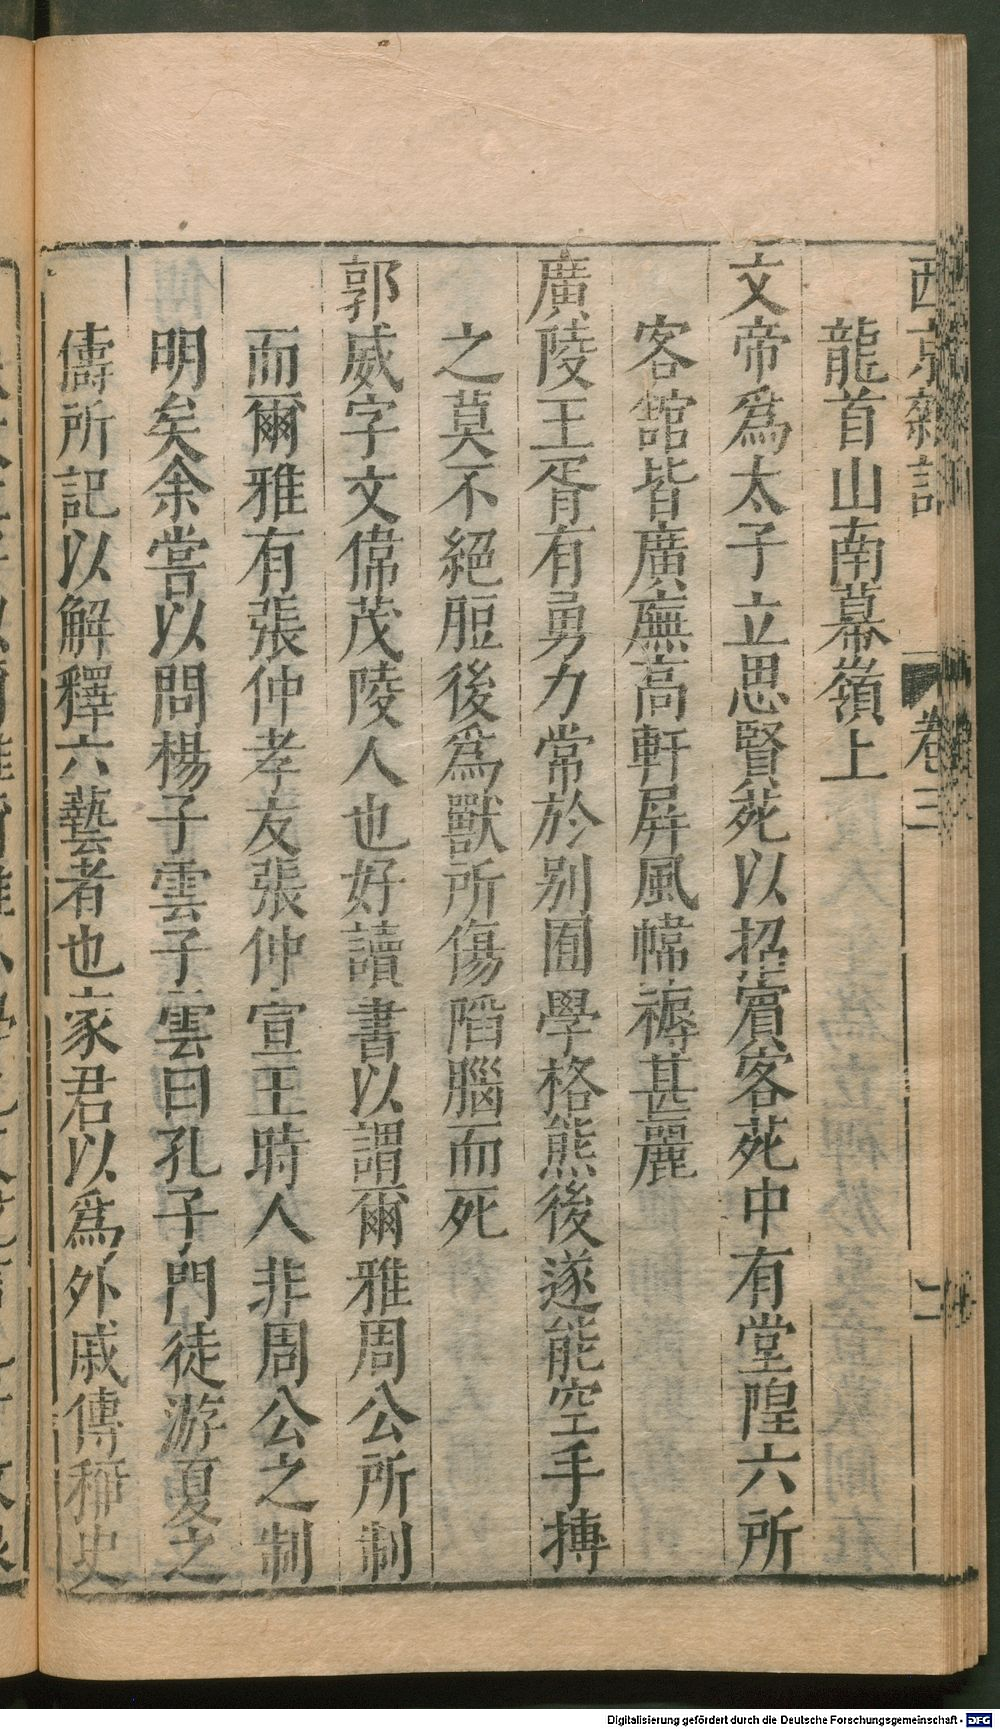 西京雜記 卷三 二
龍首山南幕嶺上
文帝爲太子立思賢苑以招賓客苑中有堂隍六所
客館皆廣廡高軒屏風幃褥甚麗
廣陵王胥有勇力常於别囿學格熊後遂能空手搏
之莫不絕脰後爲獸所傷陷腦而死
郭威字文偉茂陵人也好讀書以謂爾雅周公所制
而爾雅有張仲孝友張仲宣王時人非周公之制
明矣余嘗以問楊子雲子雲曰孔子門徒游夏之
儔所記以解釋六藝者也家君以爲外戚傳稱史
Digitalisierung gefördert durch die Deutsche Forschungsgemeinschaft - DFG